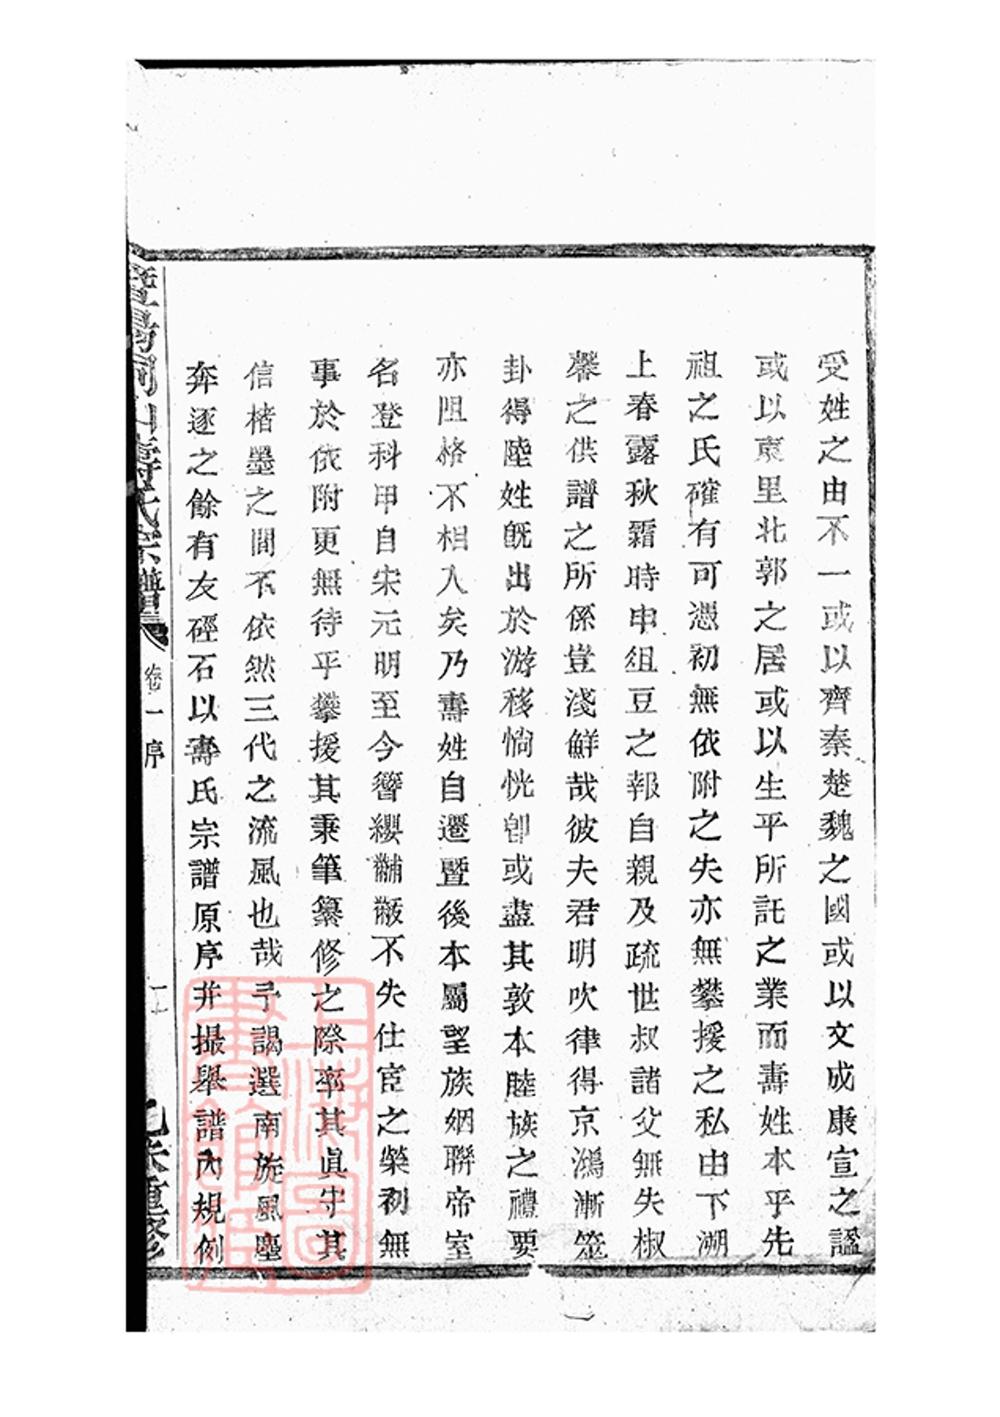 受姓之由不一或以齊秦楚魏之國或以文成康宣之謚
或以東里北郭之居或以生平所託之業而壽姓本乎先
祖之氏確有可憑初無依附之失亦無攀援之私由下溯
上春露秋霜時申俎豆之報自親及疏世叔諸父無失椒
馨之供譜之所係豈淺鮮哉彼夫君明吹律得京鴻漸筮
卦得陸姓旣出於游移惝恍卽或盡其敦本睦族之禮要
亦阻格不相入矣乃壽姓自遷暨後本屬望族姻聯帝室
名登科甲自宋元明至今簪纓黼黻不失仕宦之榮初無
事於依附更無待乎攀援其秉筆纂修之際率其眞守其
信楮墨之間不依然三代之流風也哉予謁選南旋風塵
奔逐之餘有友硜石以壽氏宗譜原序幷撮舉譜內規例
暨陽同山壽氏宗譜
卷一 序
己未重修
上海圖書館藏